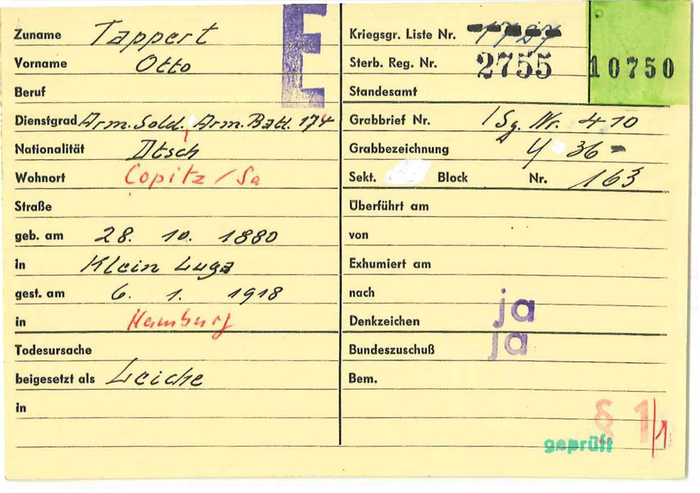 Zuname Tappert
Vorname Otto
Beruf
Dienstgrad Arm. Sold., Arm. Batl. 174
Nationalität Dtsch
Wohnort Copitz / Sa
Straße
geb. am 28. 10. 1880
in Klein Luga
gest. am 6. 1. 1918
in Hamburg
Todesursache
beigesetzt als Leiche
in
E
Kriegsgr. Liste Nr.
Sterb. Reg. Nr. 2755
10750
Standesamt
Grabbrief Nr. / Sg. Nr. 410
Grabbezeichnung Y 36 -
Sekt. Block Nr. 163
Überführt am
von
Exhumiert am
nach
Denkzeichen ja
Bundeszuschuß ja
Bem.
§ 1/1
geprüft